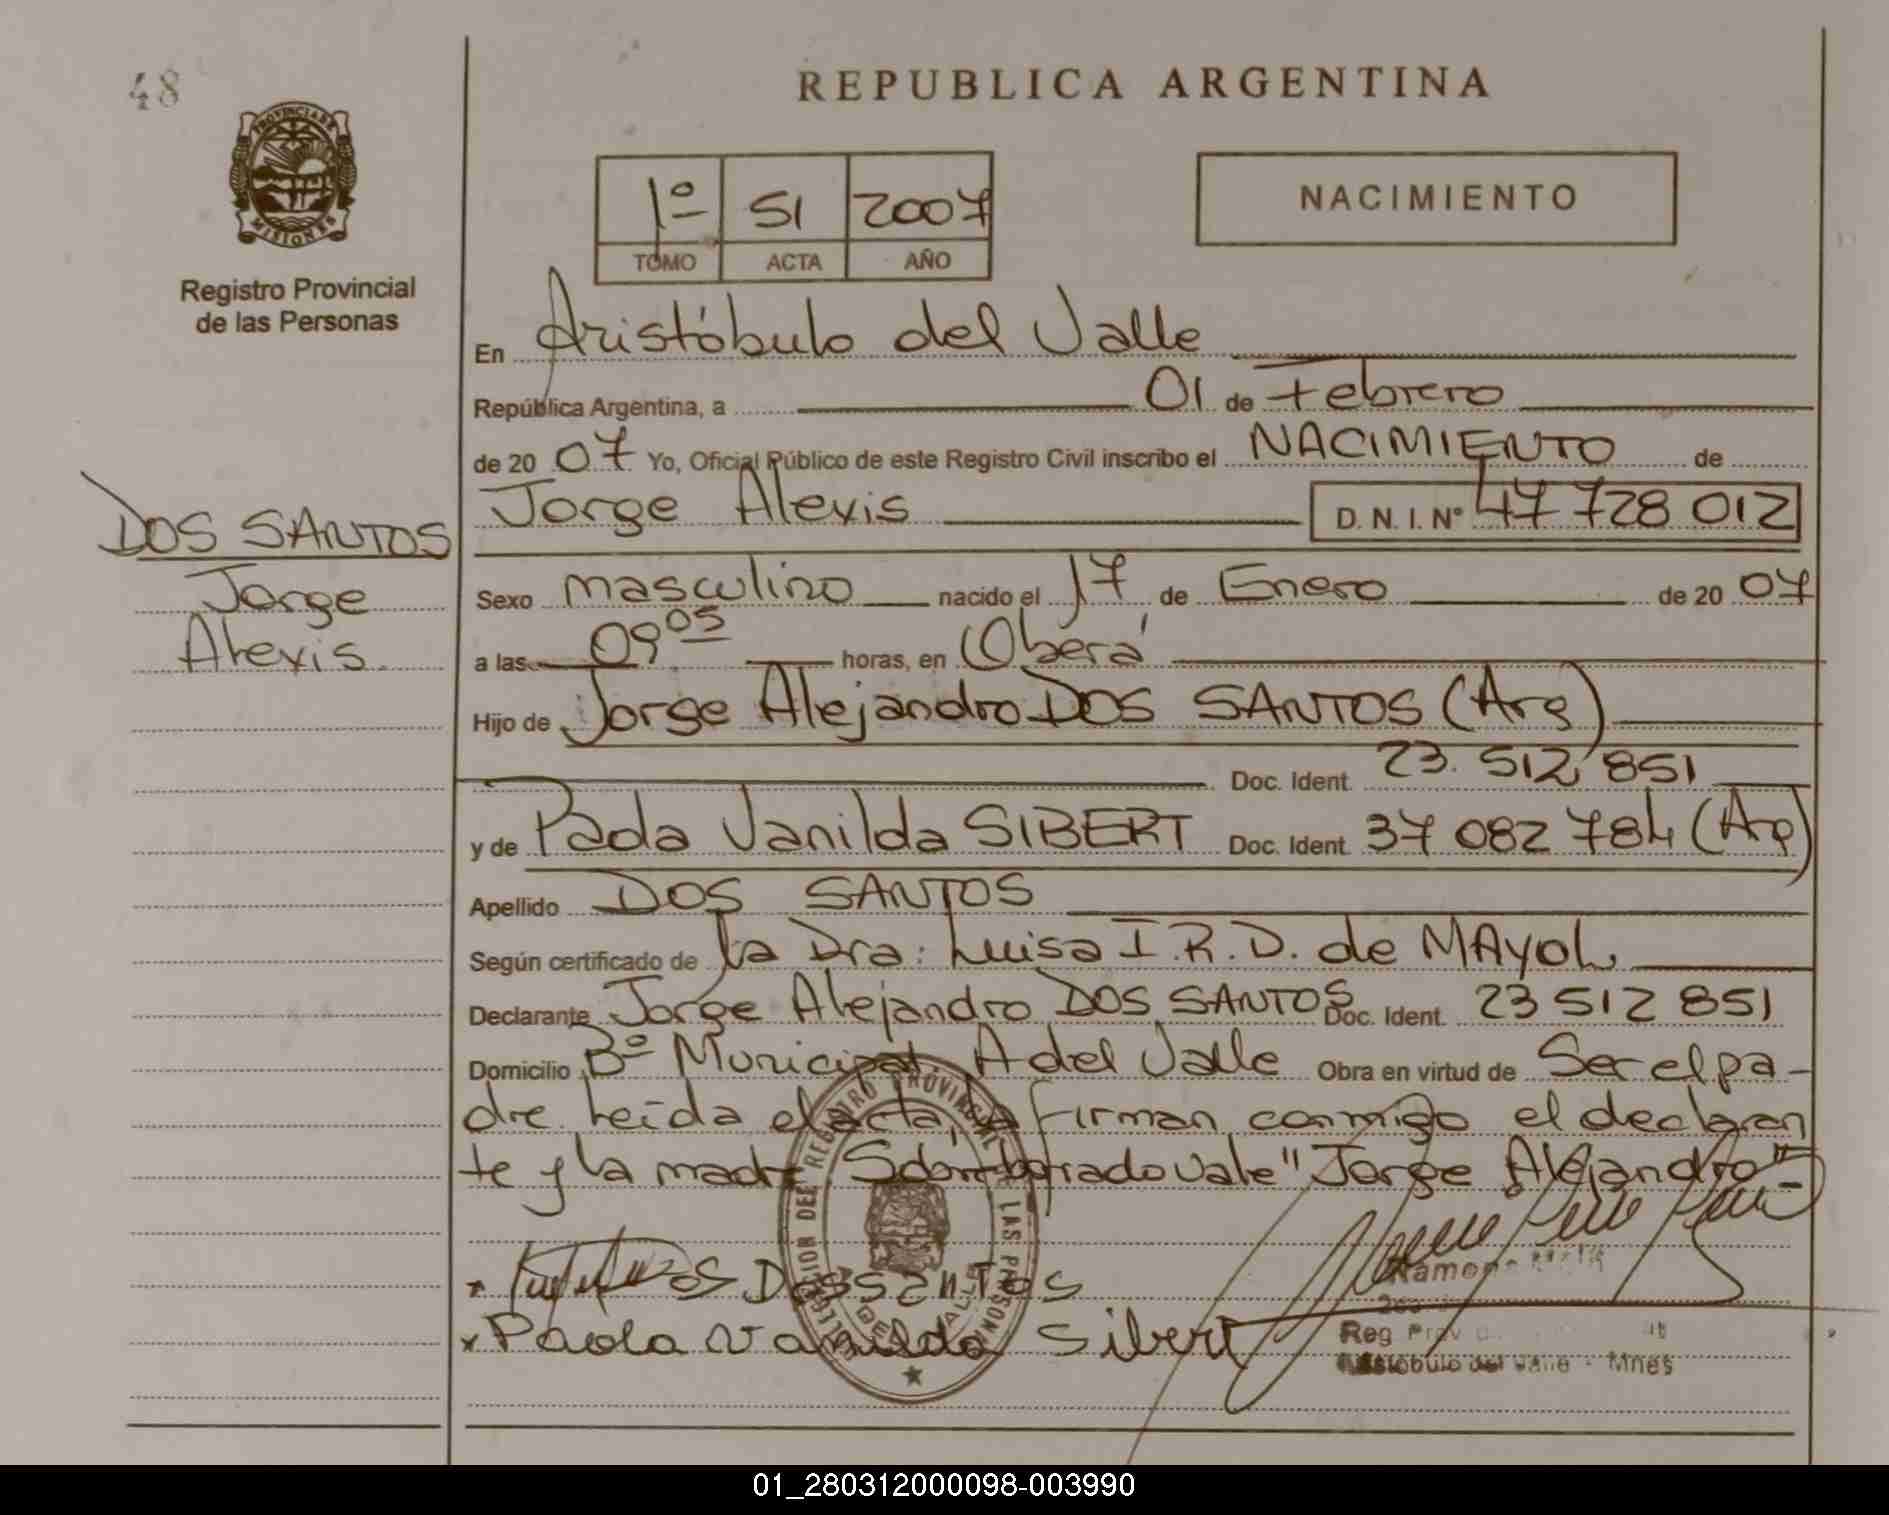 48
REPUBLICA ARGENTINA
PROVINCIA DE
MISIONES
Registro Provincial
de las Personas
1º 51 2007
TOMO ACTA AÑO
NACIMIENTO
En Aristóbulo del Valle
República Argentina, a 01 de Febrero
de 20 07 Yo, Oficial Público de este Registro Civil inscribo el NACIMIENTO de
Jorge Alexis D. N. I. Nº 47 728 012
DOS SANTOS
Jorge
Alexis.
Sexo masculino nacido el 17 de Enero de 20 07
a las 09 05 horas, en Oberá
Hijo de Jorge Alejandro DOS SANTOS (Arg)
Doc. Ident. 23. 512 851
y de Paola Vanilda SIBERT Doc. Ident. 37 082 784 (Arg)
Apellido DOS SANTOS
Según certificado de la Dra: Luisa I. R. D. de MAYOL
Declarante Jorge Alejandro DOS SANTOS Doc. Ident. 23 512 851
Domicilio Bº Municipal. A del Valle Obra en virtud de Ser el pa-
dre. Leída el acta, la firman conmigo el declaran
te y la madre Sobreborrado vale "Jorge Alejandro"-
DOS SANTOS
Paola Vanilda Sibert
REGISTRO PROVINCIAL DE LAS PERSONAS
DEL VALLE
Ramona
Reg Prov
Aristóbulo del Valle - Mnes
01_280312000098-003990